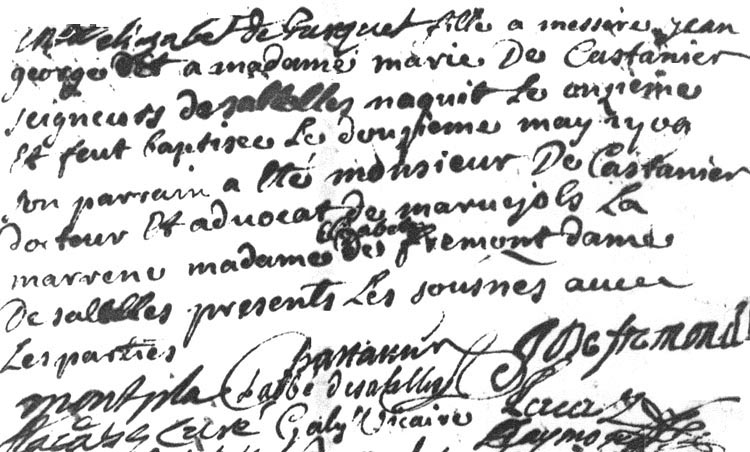 elisabet de parquet fille a messire jean
george et a madame marie De Castanier
seigneurs de salelles naquit Le onsieme
Et feut baptisee Le dousieme may 1709
son parrain a été monsieur De Castanier
docteur Et advocat de maruejols La
marrene madame elisabet des fremont dame
De salelles presents Les sousnes avec
Les parties
De fremond
montpila L'abbé de salelles
Curé Galy Vicaire
Raymond